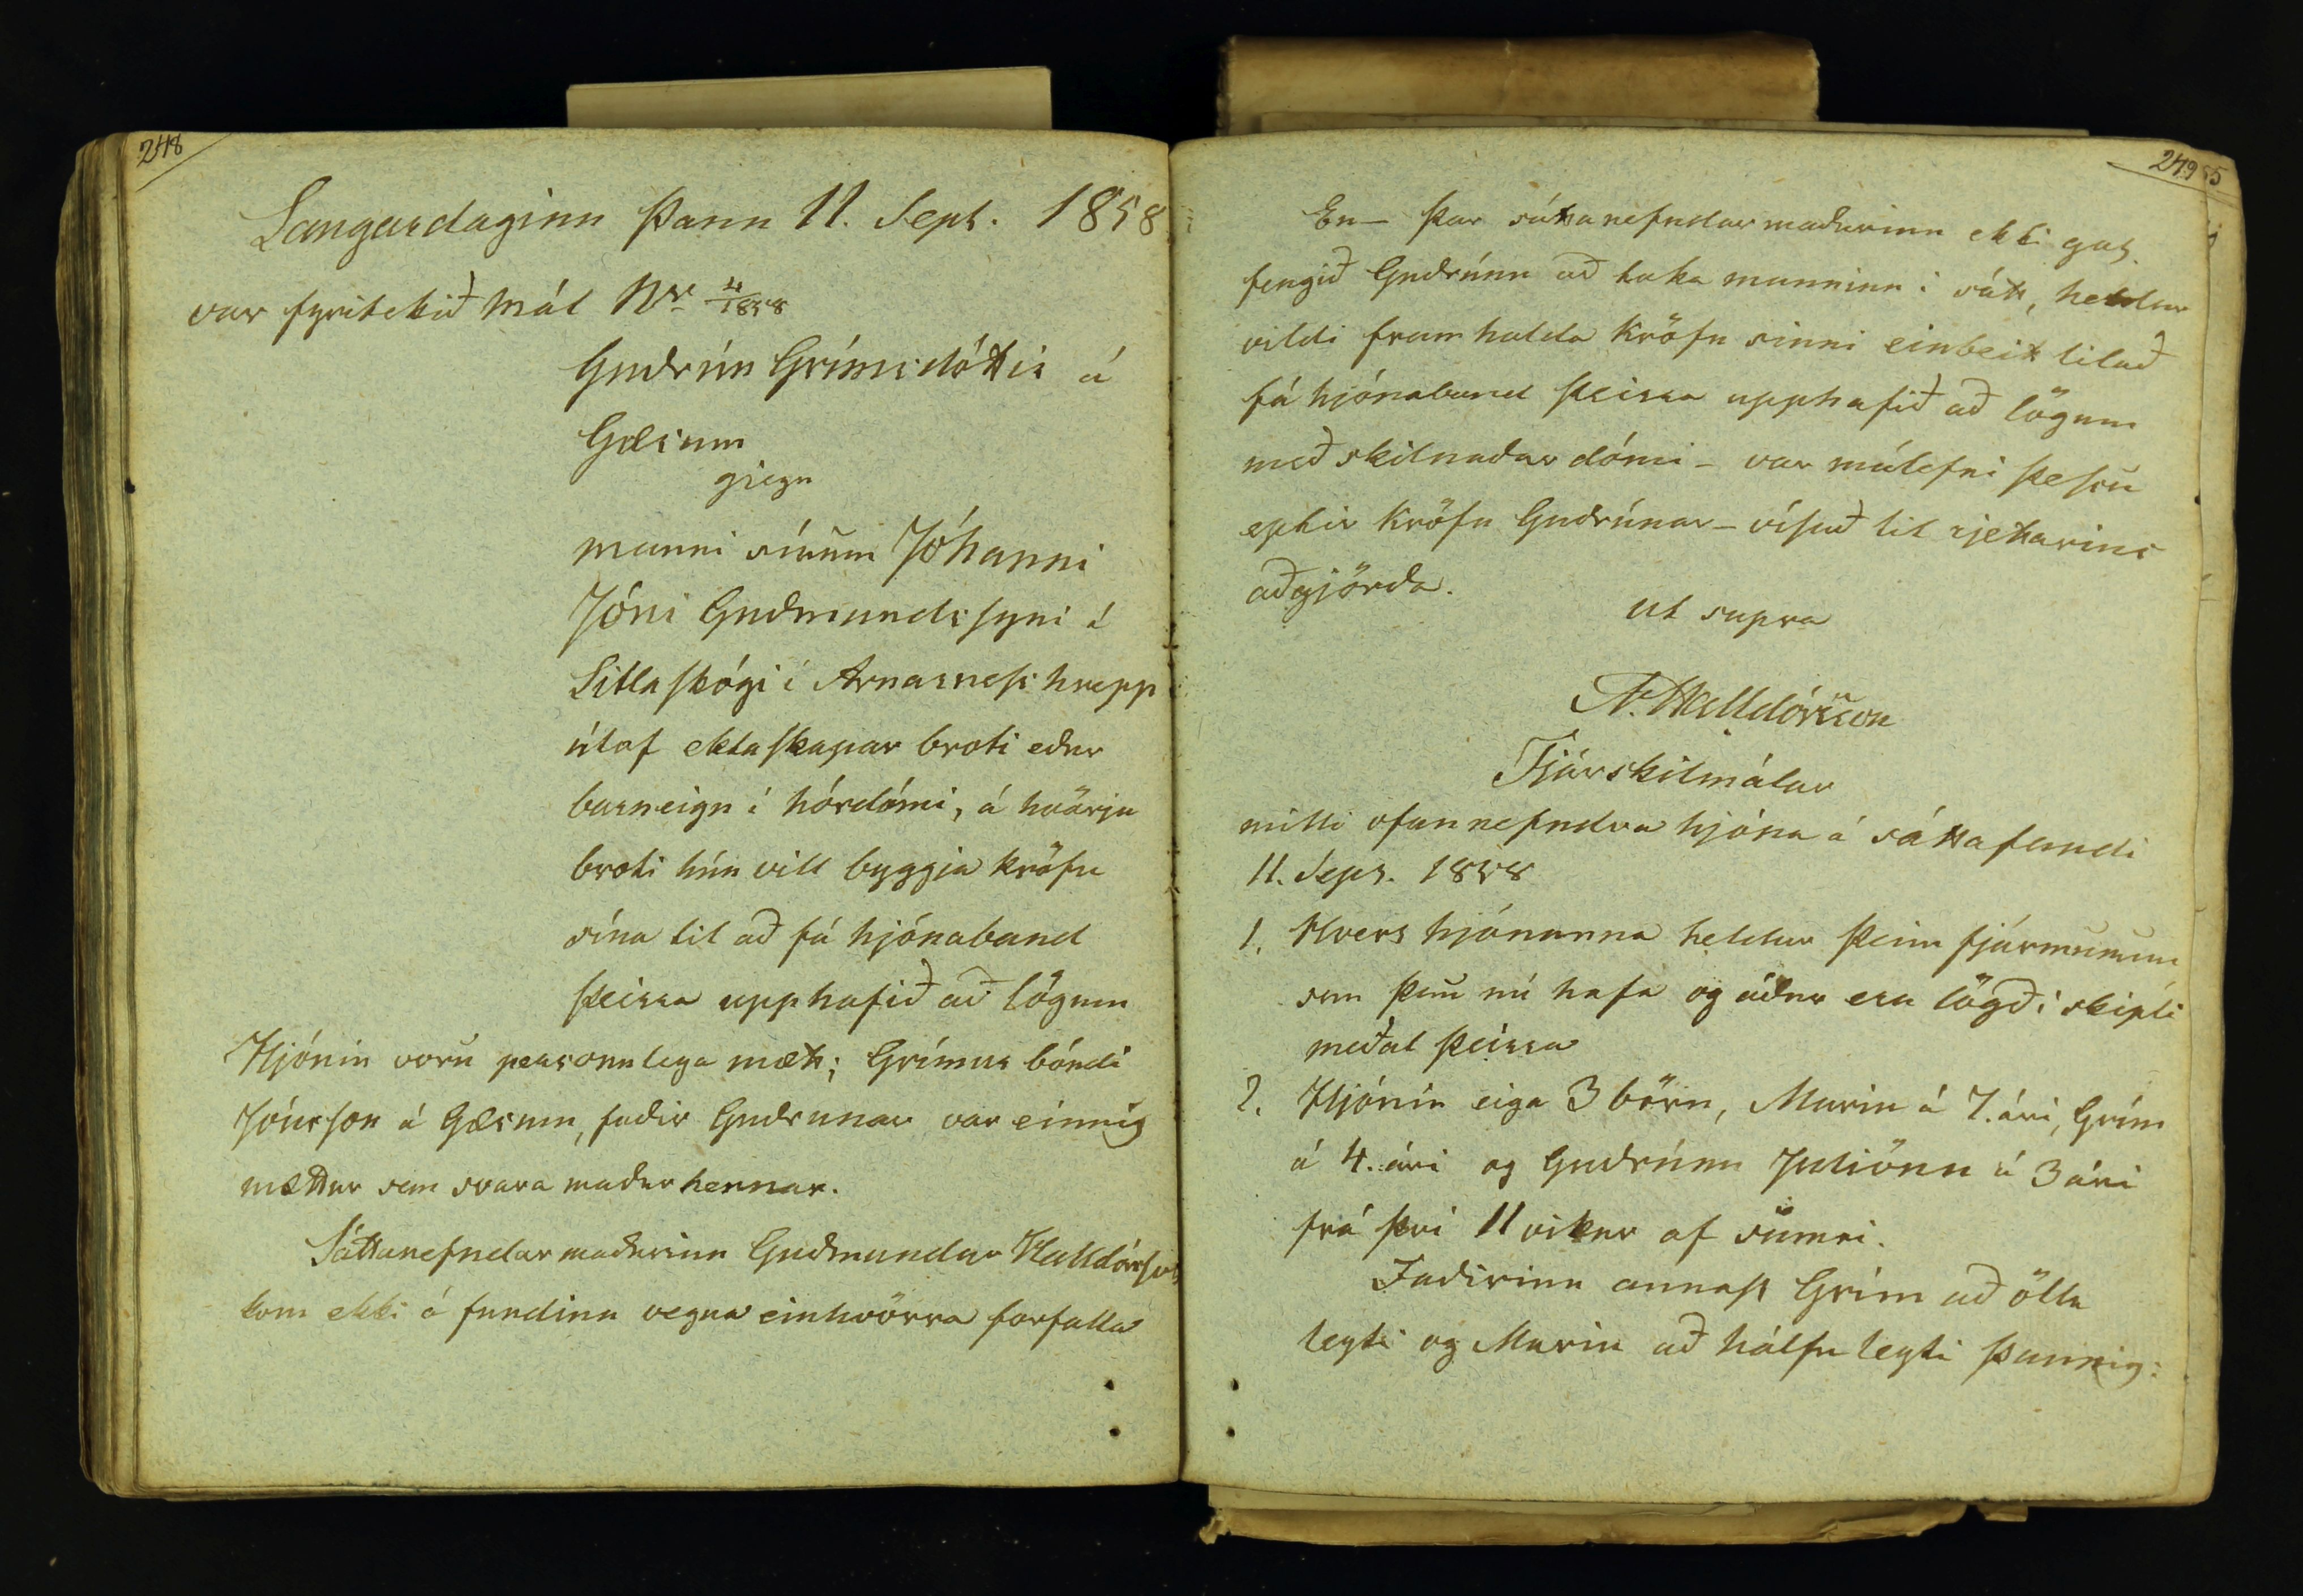 248
Laugardaginn þann 11. Sept. 1858
var fyritekið mál Nr. 4/1858
Guðrún Grímsdóttir á
Gæsum
giegn
manni sínum Jóhanni
Jóni Guðmundssyni á
Litlaskógi í Arnarness hrepp
útaf ektaskapar broti eður
barneign í hórdómi, á hvörju
broti hún vill byggja kröfu
sína til að fá hjónaband
þeirra upphafið að lögum
Hjónin voru personulega mætt; Grímur bóndi
Jónsson á Gæsum, faðir Guðrunar var einnig
mættur sem svara maður hennar.
Sáttanefndar maðurinn Guðmundur Halldórsson
kom ekki á fundinn vegna einhvörra forfalla
249
En – þar sáttanefndarmaðurinn ekki gat
fengið Guðrúnu að taka manninn í sátt, heldur
vildi framhalda kröfu sinni einbeitt tilað
fá hjónaband þeirra upphafið að lögum
með skilnaðar dómi – var málefni þessu
eptir kröfu Guðrúnar – vísað til rjettarins
aðgjörða.
ut supra
Halldórsson
Fjárskilmálar
milli ofannefndra hjóna á sáttafundi
11. Sept. 1858
1. Hvert hjónanna heldur þeim fjármunum
sem þau nú hafa og áður eru lögð í skipti
meðal þeirra
2. Hjónin eiga 3 börn, Marin á 7. ári, Grím
á 4. ári og Guðrúnu Juliönu á 3 ári
frá því 11 vikur af sumri.
Faðirinn annast Grím að öllu
leyti og Marin að hálfu leyti þannig: